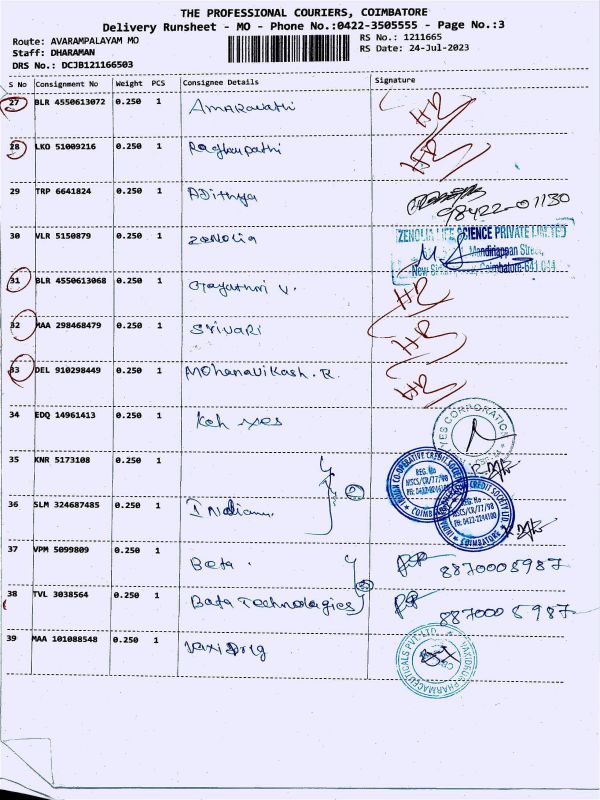 THE PROFESSIONAL COURIERS, COIMBATORE
Delivery Runsheet - MO - Phone No.:0422-3505555 - Page No.:3
Route: AVARAMPALAYAM MO RS No.: 1211665
Staff: DHARAMAN RS Date: 24-Jul-2023
DRS No.: DCJB121166503
S No Consignment No Weight PCS Consignee Details Signature
27 BLR 4550613072 0.250 1 Amaravathi HR
28 LKO 51009216 0.250 1 Raghupathi HR
29 TRP 6641824 0.250 1 Adithya 98422-01130
30 VLR 5150879 0.250 1 Zenolia
ZENOLIA LIFE SCIENCE PRIVATE LIMITED
Mandiriappan Street,
Coimbatore-641 044
31 BLR 4550613068 0.250 1 Gayathri V. HR
32 MAA 298468479 0.250 1 Srivari HR
33 DEL 910298449 0.250 1 Mohanavikash.R. HR
34 EDQ 14961413 0.250 1 yes
YES CORPORATION
35 KNR 5173108 0.250 1
CO-OPERATIVE CREDIT SOCIETY LTD.
REG. No
MSCS/CR/77/98
PH: 0422-2244100
COIMBATORE
36 SLM 324687485 0.250 1
CREDIT SOCIETY LTD.
REG. No
MSCS/CR/77/98
PH: 0422-2244100
COIMBATORE
37 VPM 5099809 0.250 1 Beta 8870005987
38 TVL 3038564 0.250 1 Bata Technologies 8870005987
39 MAA 101088548 0.250 1 Vaxi
VAXIDRUG PHARMACEUTICALS PVT. LTD.